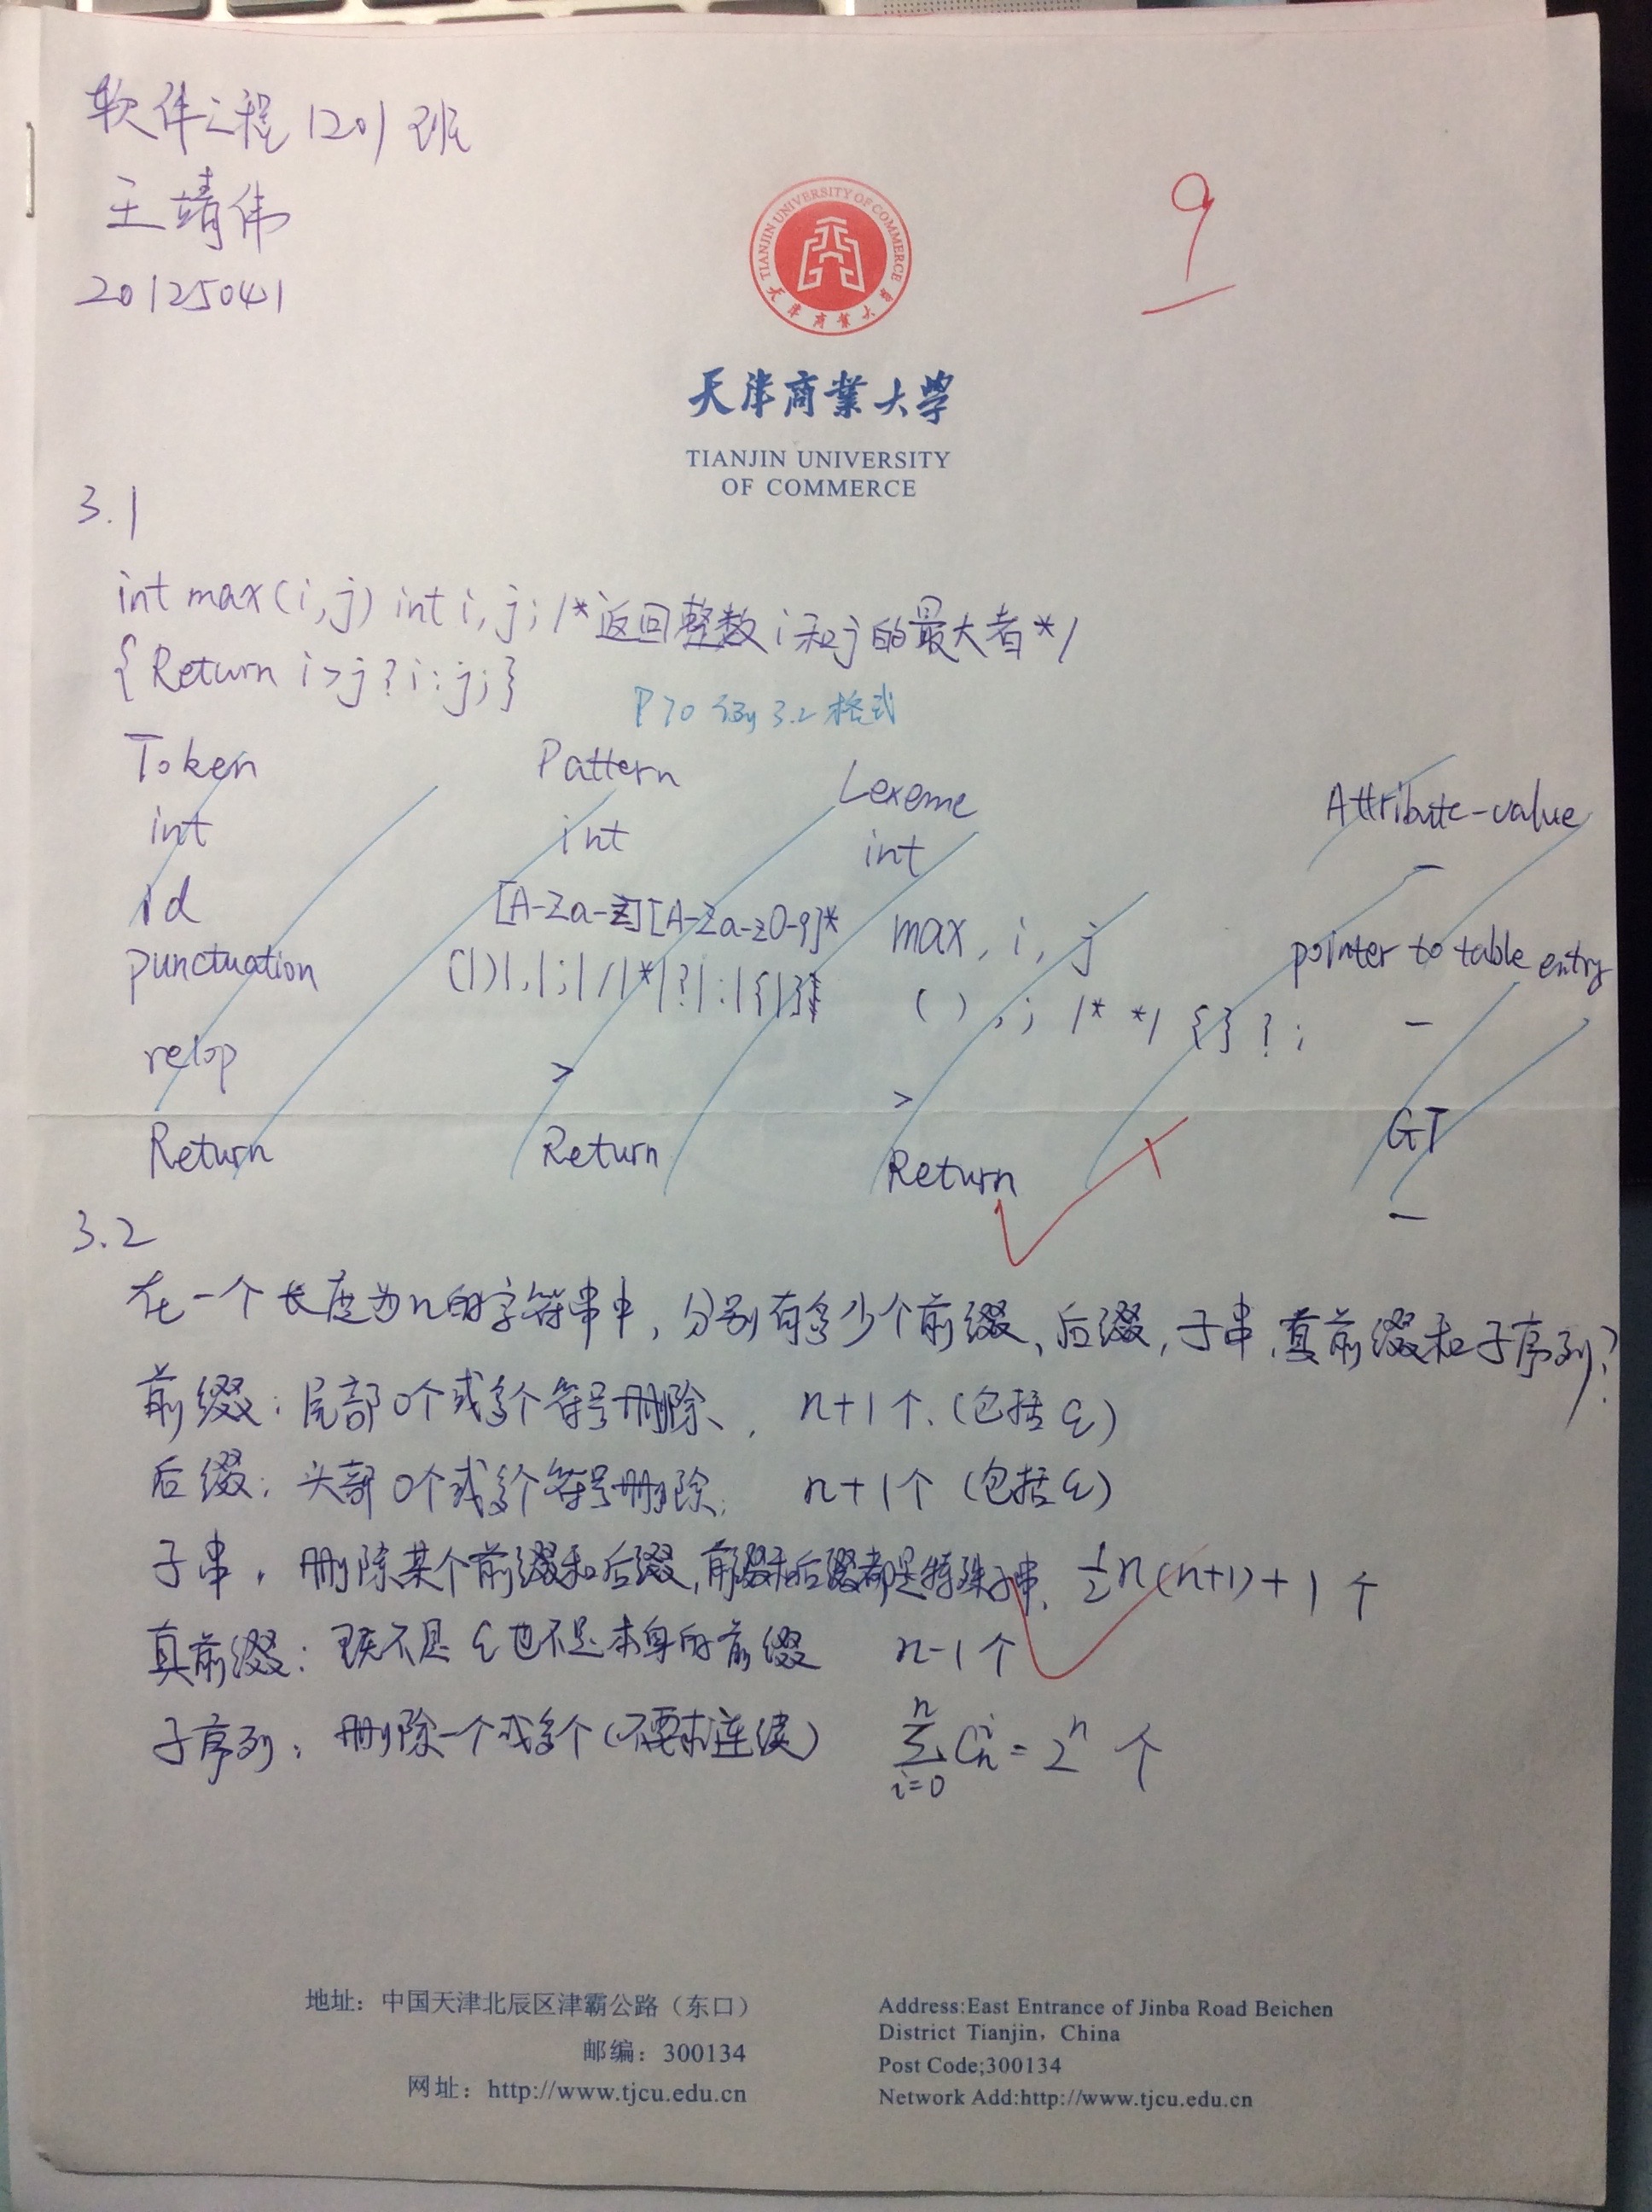 软件工程1201班
王靖伟
20125041
9
TIANJIN UNIVERSITY OF COMMERCE
天津商業大
天津商業大学
TIANJIN UNIVERSITY
OF COMMERCE
3.1
int max(i,j) int i,j; /*返回整数i和j的最大者*/
{Return i>j?i:j;}
P70 例 3.2 格式
Token Pattern Lexeme Attribute-value
int int int —
id [A-Za-z][A-Za-z0-9]* max, i, j pointer to table entry
punctuation (|)|,|;|/|*|?|:|{|} ( ) , ; /* */ {} ? : —
relop > > GT
Return Return Return —
3.2
在一个长度为n的字符串中,分别有多少个前缀、后缀,子串,真前缀和子序列?
前缀:尾部0个或多个符号删除、, n+1个.(包括ε)
后缀:头部0个或多个符号删除; n+1个 (包括ε)
子串,删除某个前缀和后缀,前缀和后缀都是特殊子串、½n(n+1)+1个
真前缀:既不是ε也不是本身的前缀 n-1个
子序列:删除一个或多个(不要求连续) ∑ⁿᵢ₌₀ Cₙⁱ = 2ⁿ 个
地址:中国天津北辰区津霸公路(东口)
邮编:300134
网址:http://www.tjcu.edu.cn
Address:East Entrance of Jinba Road Beichen
District Tianjin, China
Post Code;300134
Network Add:http://www.tjcu.edu.cn